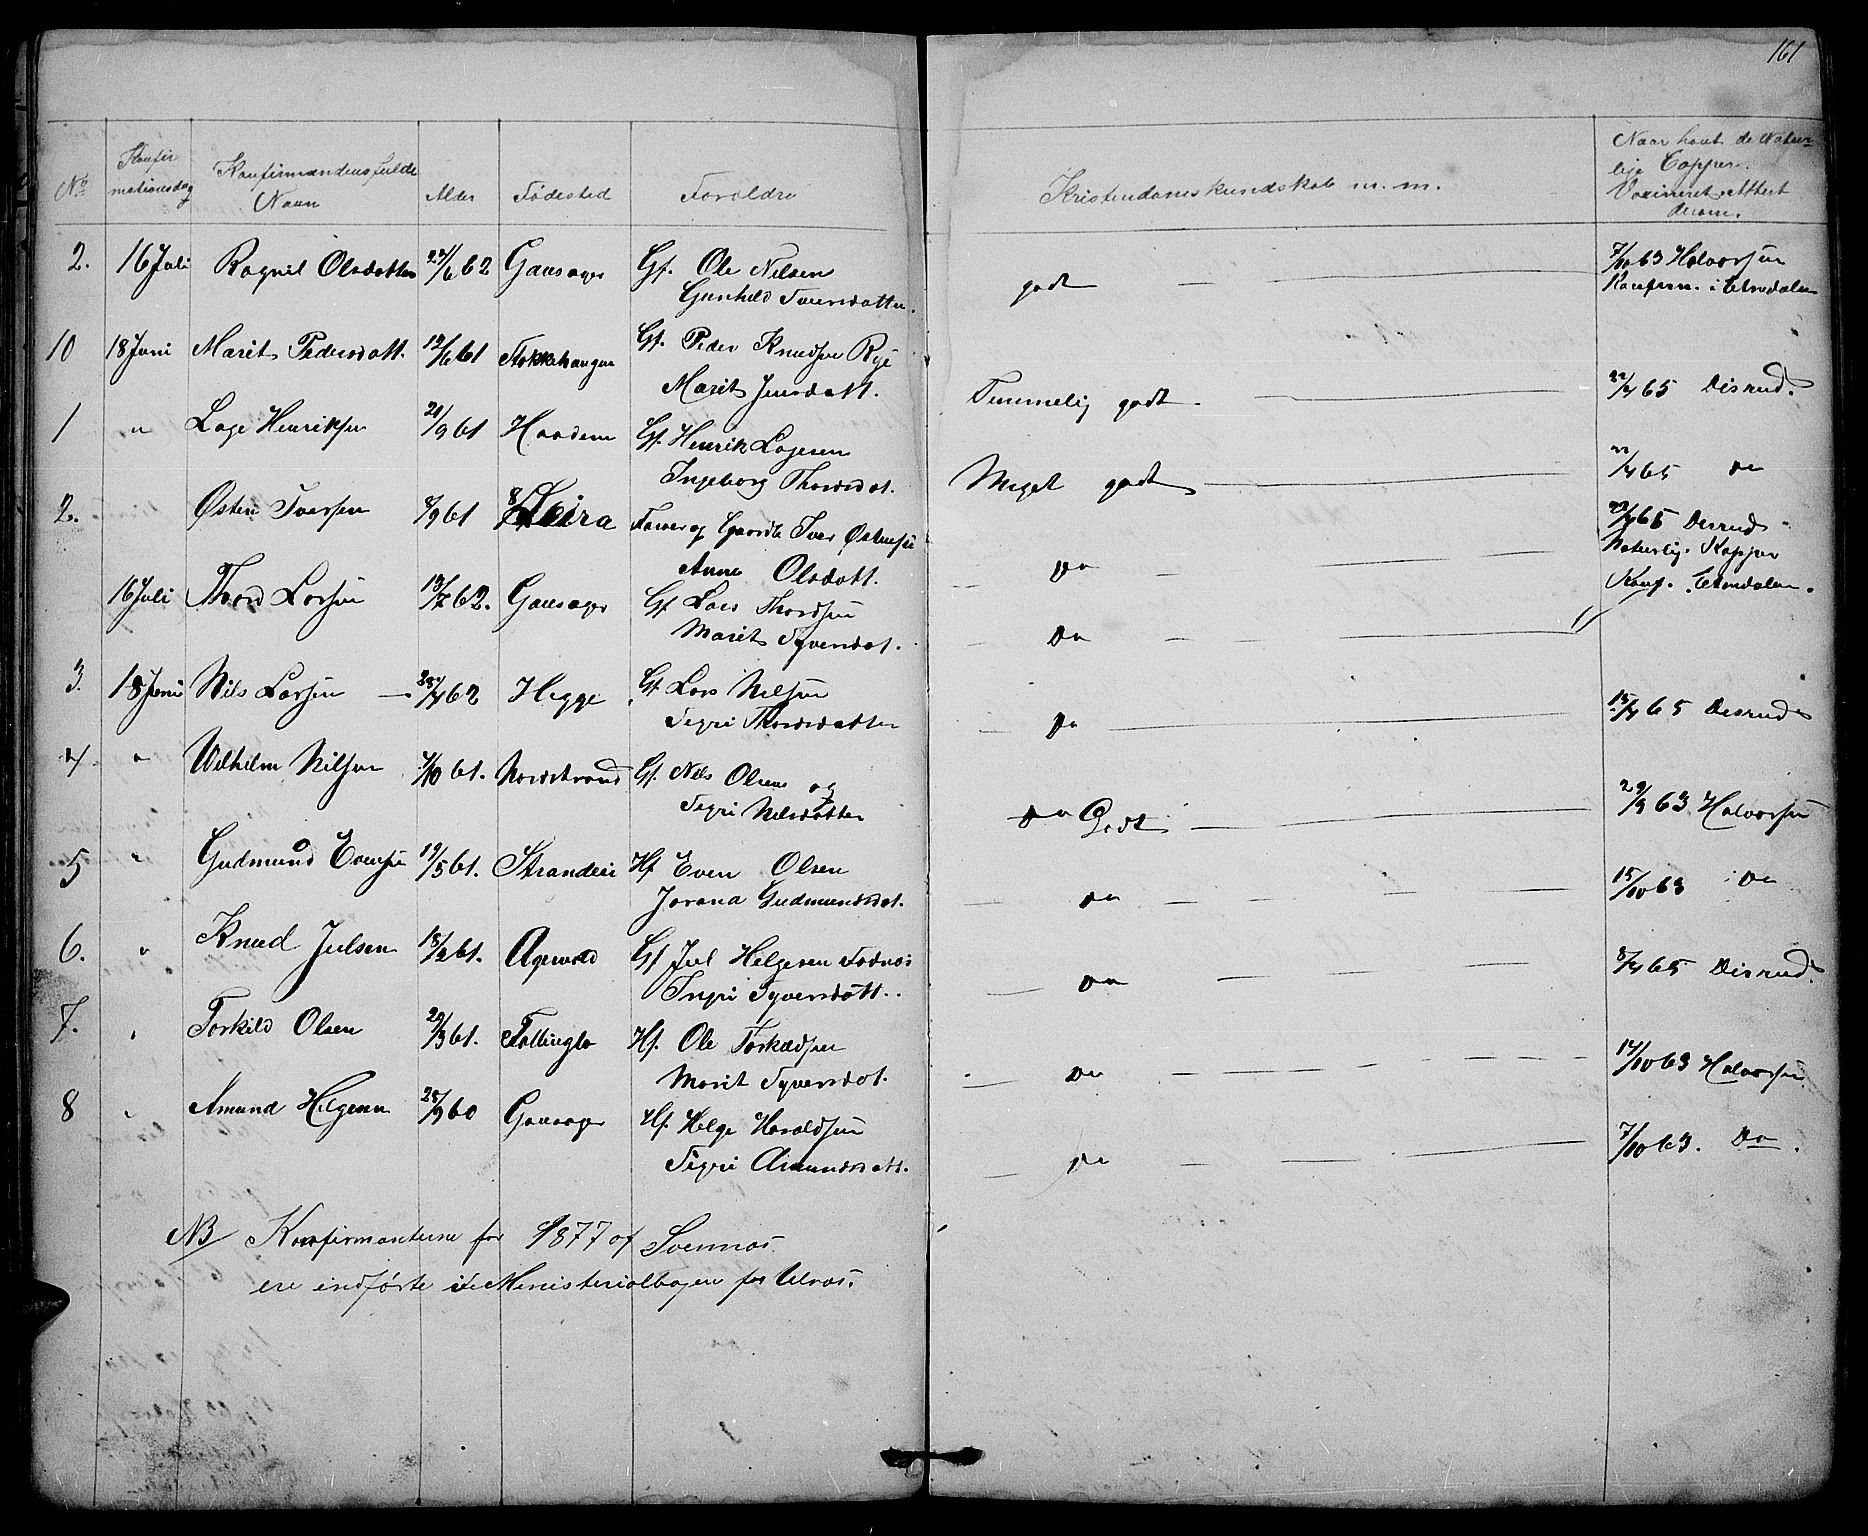 161
No
Konfirmationsdag
Konfirmandens fulde Navn
Alder
Fødested
Foroldre
Kristendomskundskab m. m.
Naar havt de Naturlige Copper. Vaxineret Attest derom.
2. 16 Juli Ragnil Olsdatter 27/6 62 Gausager Gf. Ole Nilsen godt 7/10 63 Halvorsen
Gunhild Iversdatter. Konfirm. i Etnedalen
10 18 Juni Marit Pedersdatt. 12/6 61 Stokkehaugen Gf. Peder Knudsen Rye
Marit Jensdatt. Temmelig godt 22/4 65 Disrud.
1 " Lage Henriksen 21/9 61 Haadem Gf. Henrik Lagesen
Ingeborg Thorsdat. Meget godt 22/4 65 Do
2. Østen Iversen 8/9 61 Leira Farver og Gaardb Iver Østensen 22/4 65 Disrud
Anne Olsdatt. Do Naturlig. Kopper
16 Juli Thord Larsen 13/7 62. Gausager Gf Lars Thordsen Konf. Etnedalen.
Marit Syversdat. Do "
3. 18 Juni Nils Larsen 28/4 62 Hegge Gf Lars Nilsen
Sigri Thorsdatter Do 15/4 65 Disrud
4 " Wilhelm Nilsen 4/10 61. Nordstrand Gf. Nils Olsen og
Sigri Nilsdatter Do Godt 29/9 63 Halvorsen
5 " Gudmund Evensen 19/5 61. Strandeie Hf Even Olsen
Jorand Gudmundsdat. Do 15/10 63 Do
6. " Knud Julsen 18/2 61. Agevold Gf Jul Helgesen Fodnæs
Ingri Syversdatt. Do 8/4 65 Disrud.
7. " Torkild Olsen 20/3 61. Follinglo Hf. Ole Torkildsen
Marit Syversdat. Do 14/10 63 Halvorsen
8 " Amund Helgesen 28/9 60 Gausager Hf. Helge Haroldsen
Sigri Amundsdatt. Do 7/10 63. Do.
NB Konfirmanterne for 1877 af Svennæs
ere indførte i Ministerialbogen for Ulnæs.